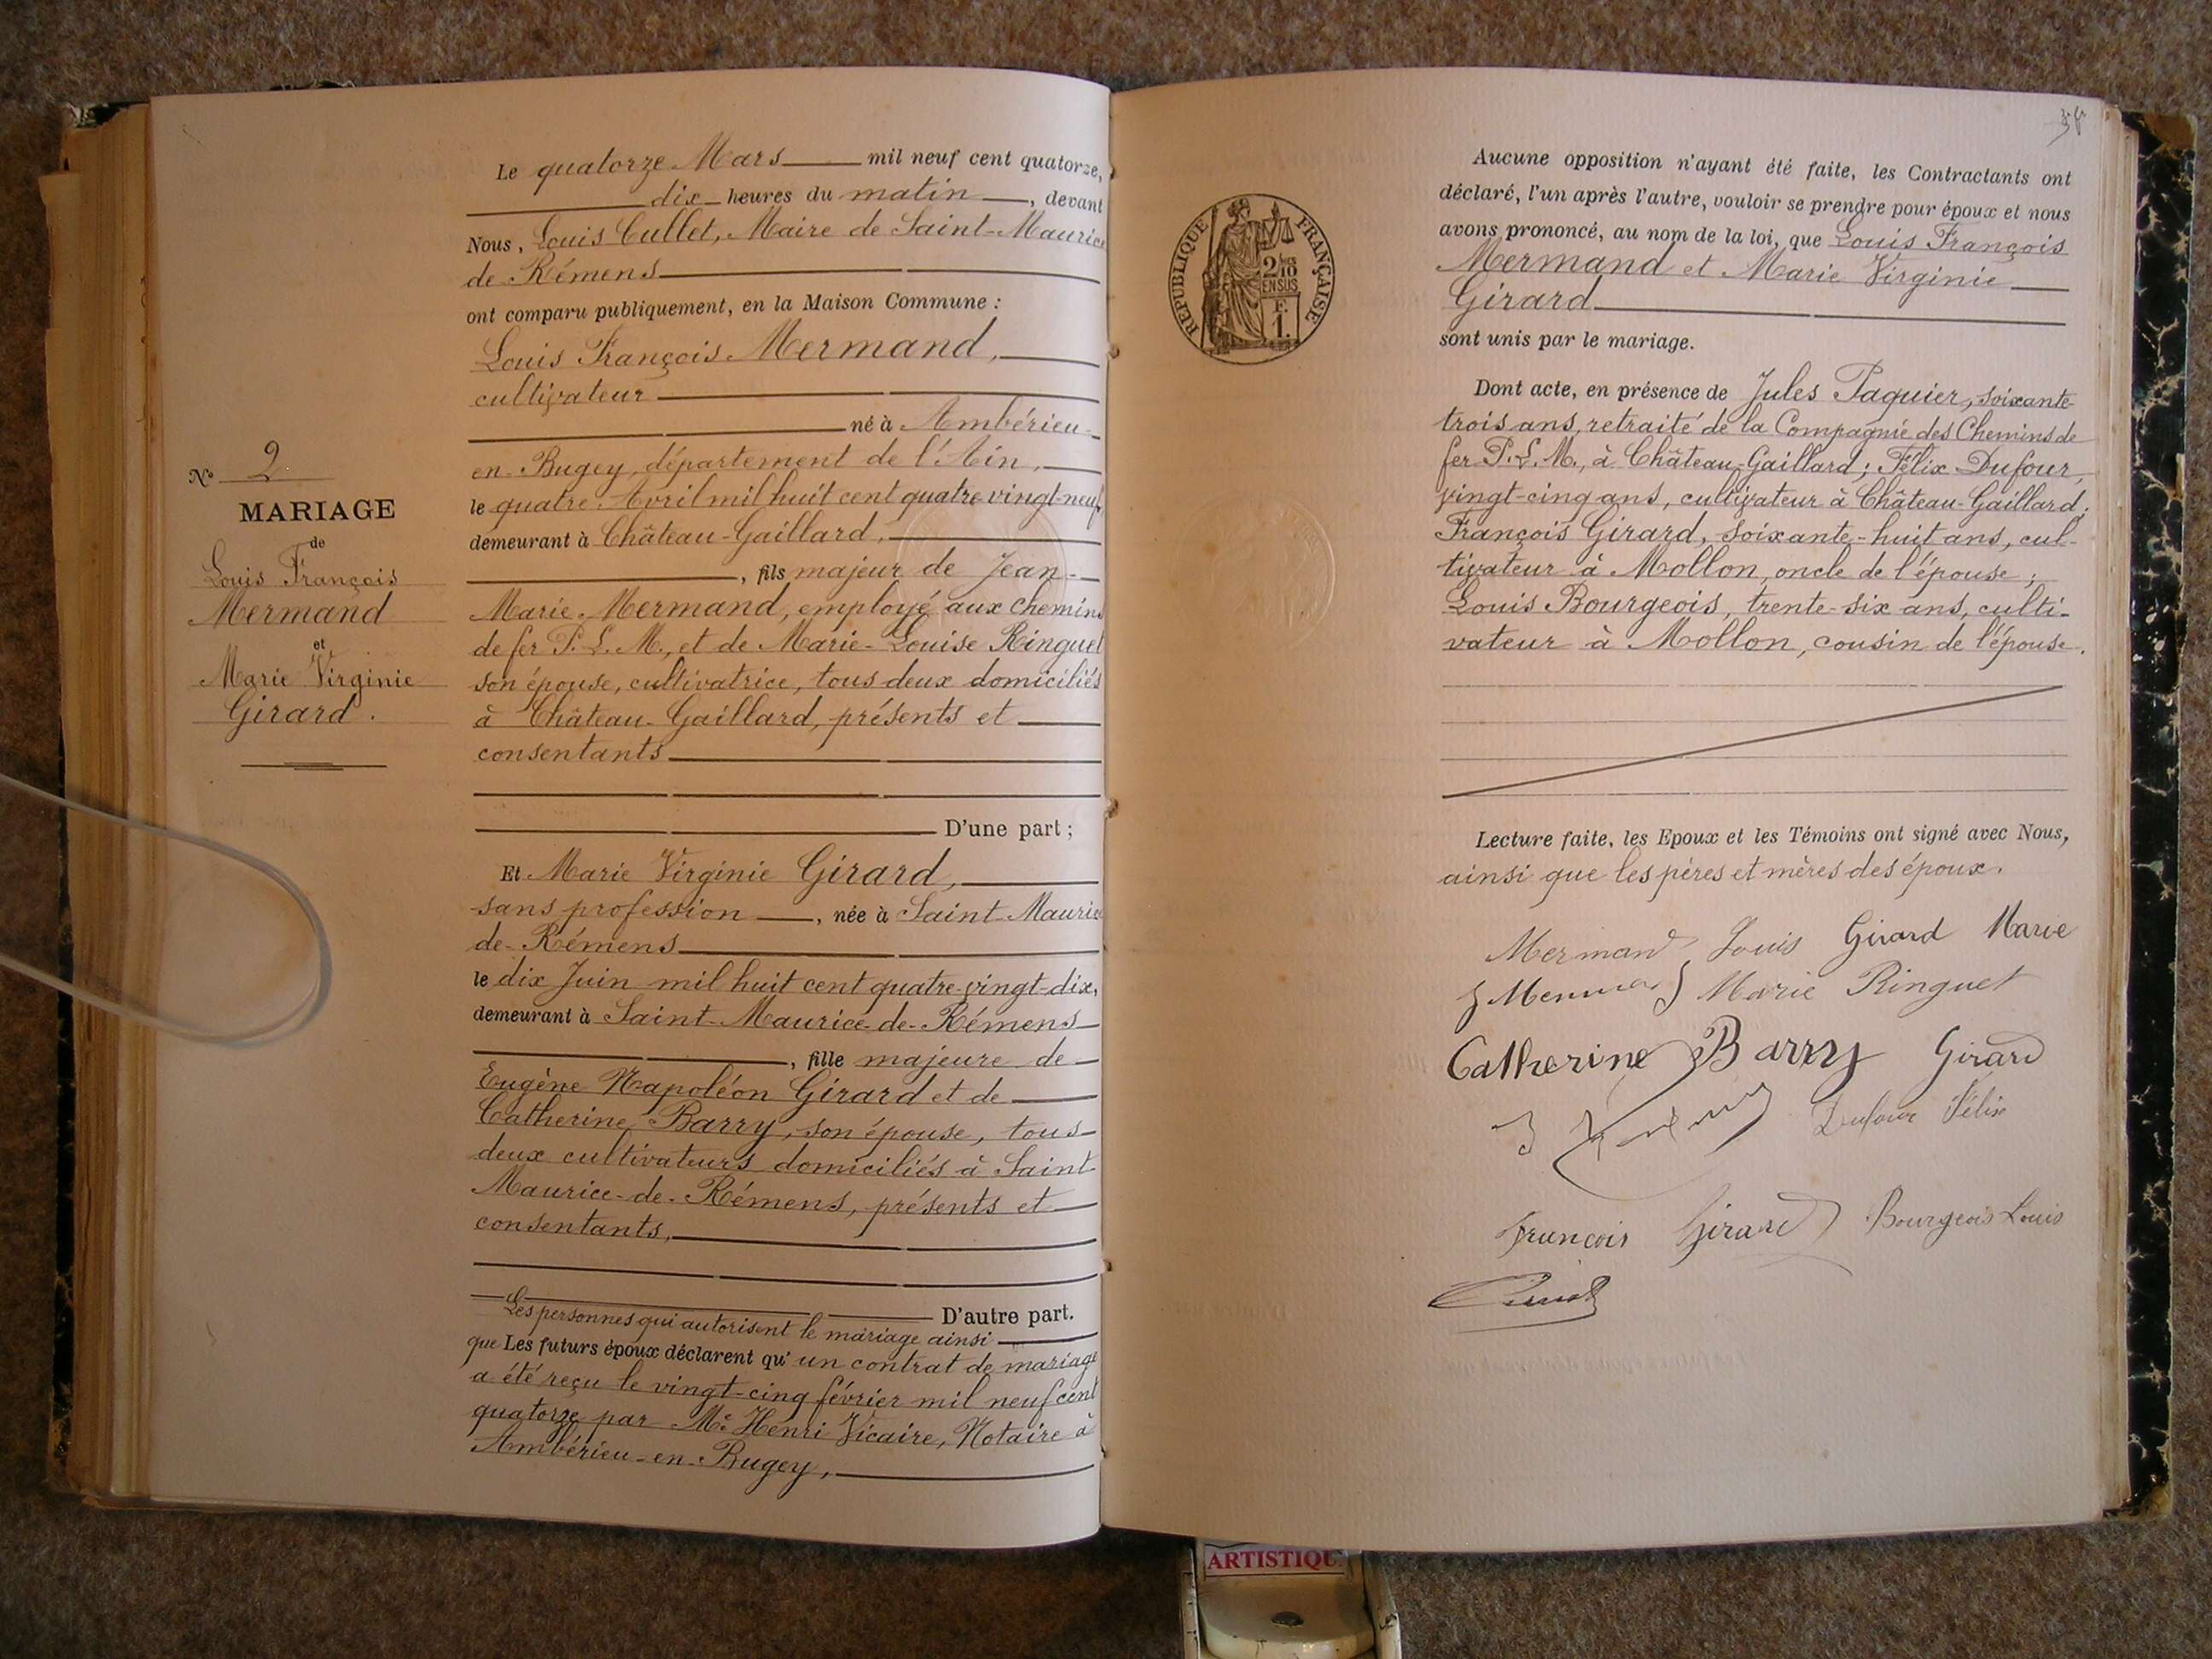 N° 2
MARIAGE
de
Louis François
Mermand
et
Marie Virginie
Girard.
Le quatorze Mars mil neuf cent quatorze,
dix heures du matin, devant
Nous, Louis Cullet, Maire de Saint-Maurice
de Rémens
ont comparu publiquement, en la Maison Commune :
Louis François Mermand,
cultivateur
né à Ambérieu-
en-Bugey, département de l'Ain,
le quatre Avril mil huit cent quatre-vingt-neuf,
demeurant à Château-Gaillard,
, fils majeur de Jean-
Marie Mermand, employé aux chemins
de fer P. L. M., et de Marie-Louise Ringuet
son épouse, cultivatrice, tous deux domiciliés
à Château-Gaillard, présents et
consentants
D'une part ;
Et Marie Virginie Girard,
sans profession, née à Saint-Maurice
de-Rémens
le dix Juin mil huit cent quatre-vingt-dix,
demeurant à Saint-Maurice-de-Rémens
, fille majeure de
Eugène Napoléon Girard et de
Catherine Barry, son épouse, tous
deux cultivateurs domiciliés à Saint
Maurice-de-Rémens, présents et
consentants,
D'autre part.
Les personnes qui autorisent le mariage ainsi
que Les futurs époux déclarent qu'un contrat de mariage
a été reçu le vingt-cinq février mil neuf cent
quatorze par Me Henri Vicaire, Notaire à
Ambérieu-en-Bugey,
RÉPUBLIQUE FRANÇAISE
2/10
EN SUS
F.
1.
Aucune opposition n'ayant été faite, les Contractants ont
déclaré, l'un après l'autre, vouloir se prendre pour époux et nous
avons prononcé, au nom de la loi, que Louis François
Mermand et Marie Virginie
Girard
sont unis par le mariage.
Dont acte, en présence de Jules Paquier, soixante-
trois ans, retraité de la Compagnie des Chemins de
fer P. L. M., à Château-Gaillard ; Félix Dufour,
vingt-cinq ans, cultivateur à Château-Gaillard ;
François Girard, soixante-huit ans, cul-
tivateur à Mollon, oncle de l'épouse ;
Louis Bourgeois, trente-six ans, culti-
vateur à Mollon, cousin de l'épouse.
Lecture faite, les Epoux et les Témoins ont signé avec Nous,
ainsi que les pères et mères des époux.
Mermand Louis Girard Marie
J Mermand Marie Ringuet
Catherine Barry Girard
Dufour Félix
François Girard Bourgeois Louis
ARTISTIQU